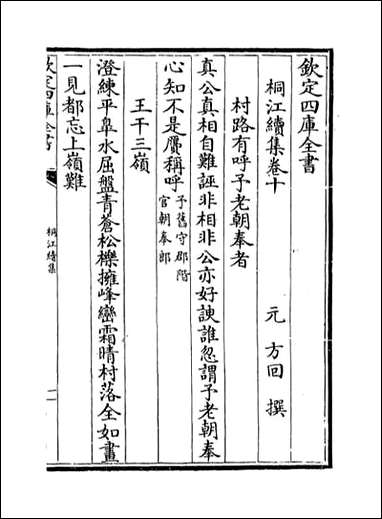 欽定四庫全書
桐江續集卷十
元 方回 撰
村路有呼予老朝奉者
真公真相自難誣非相非公亦好諛誰忽謂予老朝奉
心知不是贗稱呼 予舊守郡階
官朝奉郎
王干三嶺
澄練平皋水屈盤青蒼松櫟擁峰巒霜晴村落全如畫
一見都忘上嶺難
欽定四庫全書
桐江續集